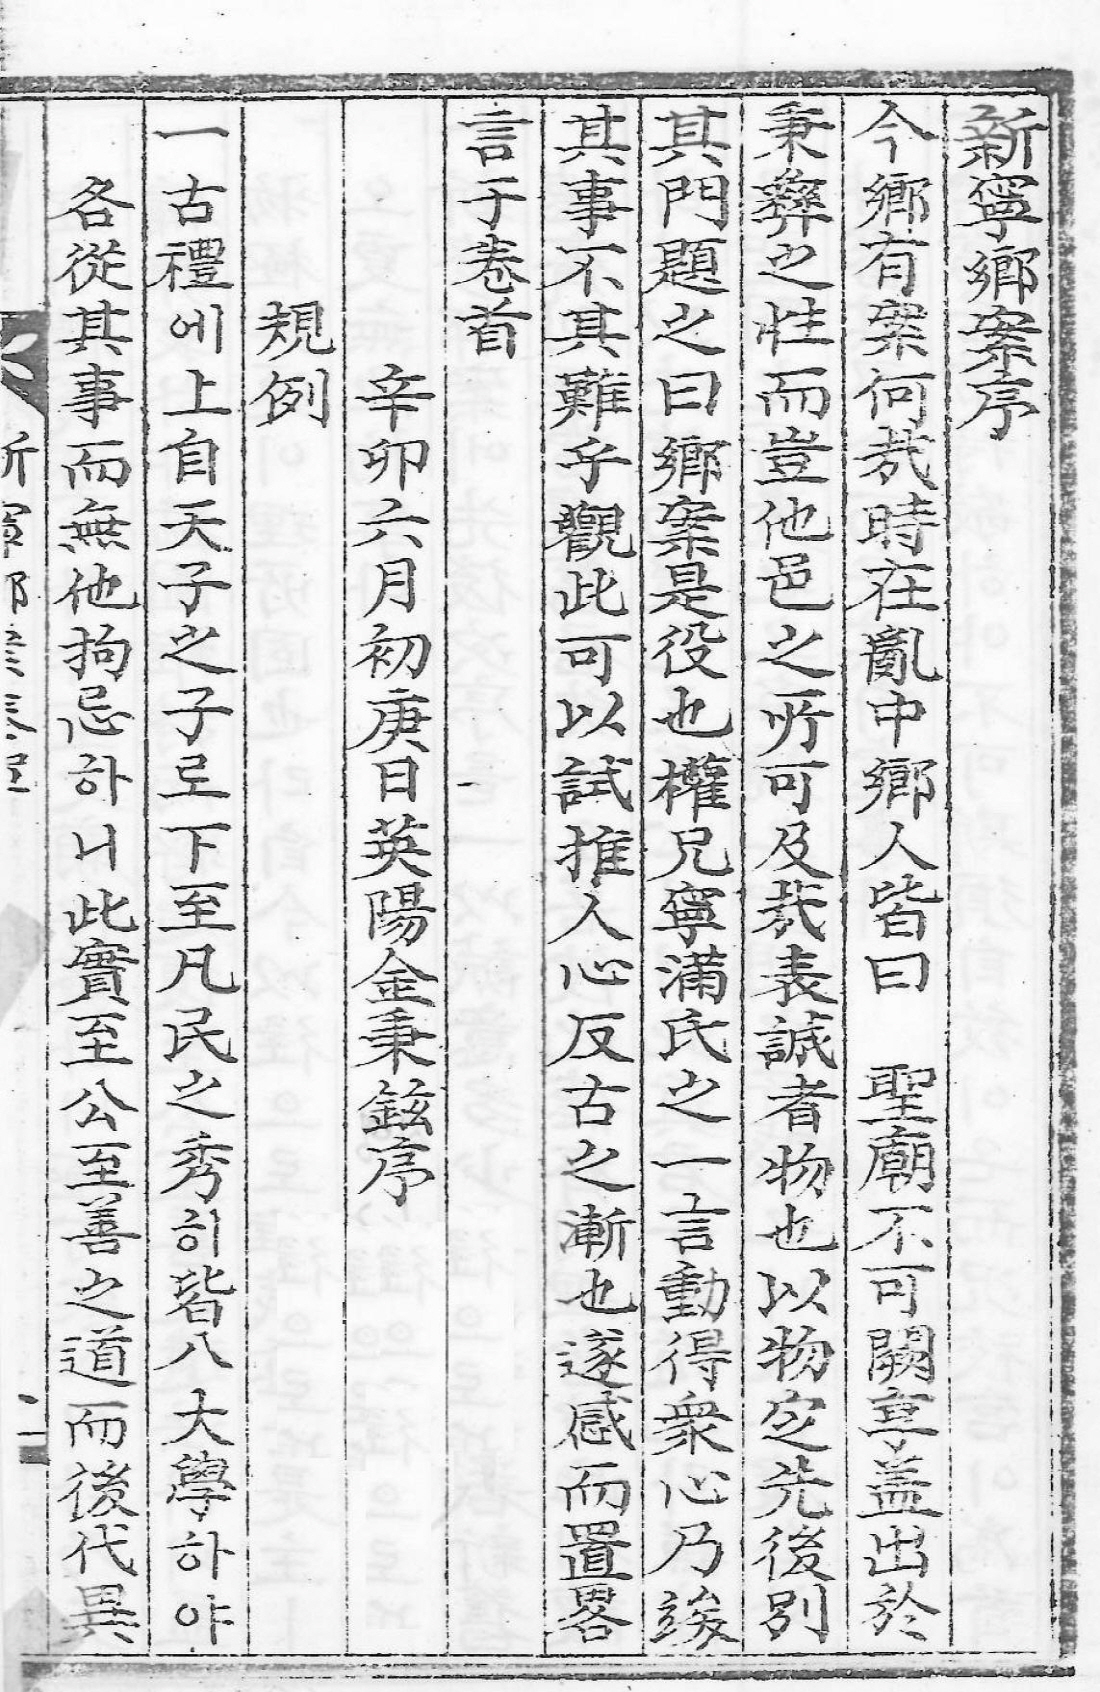 新寧鄉案序
今鄉有案何哉時在亂中鄉人皆曰　聖廟不可闕享盖出於
秉彛之性而豈他邑之所可及哉表誠者物也以物定先後別
其門題之曰鄉案是役也權兄寧滿氏之一言動得衆心乃竣
其事不其難乎觀此可以試推人心反古之漸也遂感而置畧
言于卷首
辛卯六月初庚日英陽金秉鉉序
規例
一古禮에上自天子之子로下至凡民之秀히皆入大學하야
各從其事而無他拘忌하니此實至公至善之道而後代異